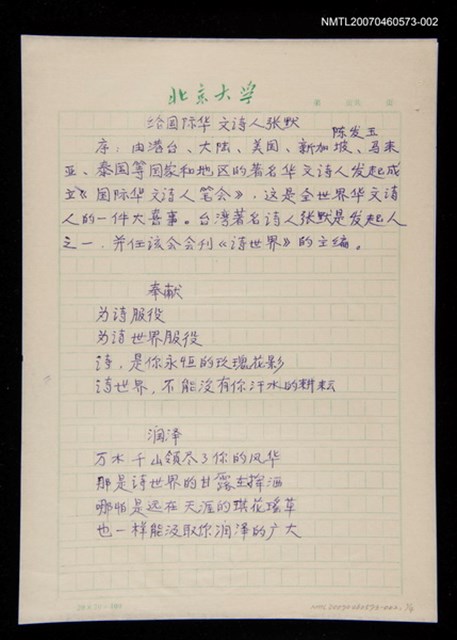 NMTL20070460573-002
北京大学
给国际华文诗人张默
陈发玉
序：由港台、大陆、美国、新加坡、马来
亚、泰国等国家和地区的著名华文诗人发起成
立《国际华文诗人笔会》，这是全世界华文诗
人的一件大喜事。台湾著名诗人张默是发起人
之一，并任该会会刊《诗世界》的主编。
奉献
为诗服役
为诗世界服役
诗，是你永恒的玫瑰花影
诗世界，不能没有你汗水的耕耘
润泽
万水千山领尽了你的风华
那是诗世界的甘露在挥洒
哪怕是远在天涯的琪花瑶草
也一样能汲取你润泽的广大
NMTL20070460573-002, 1/6